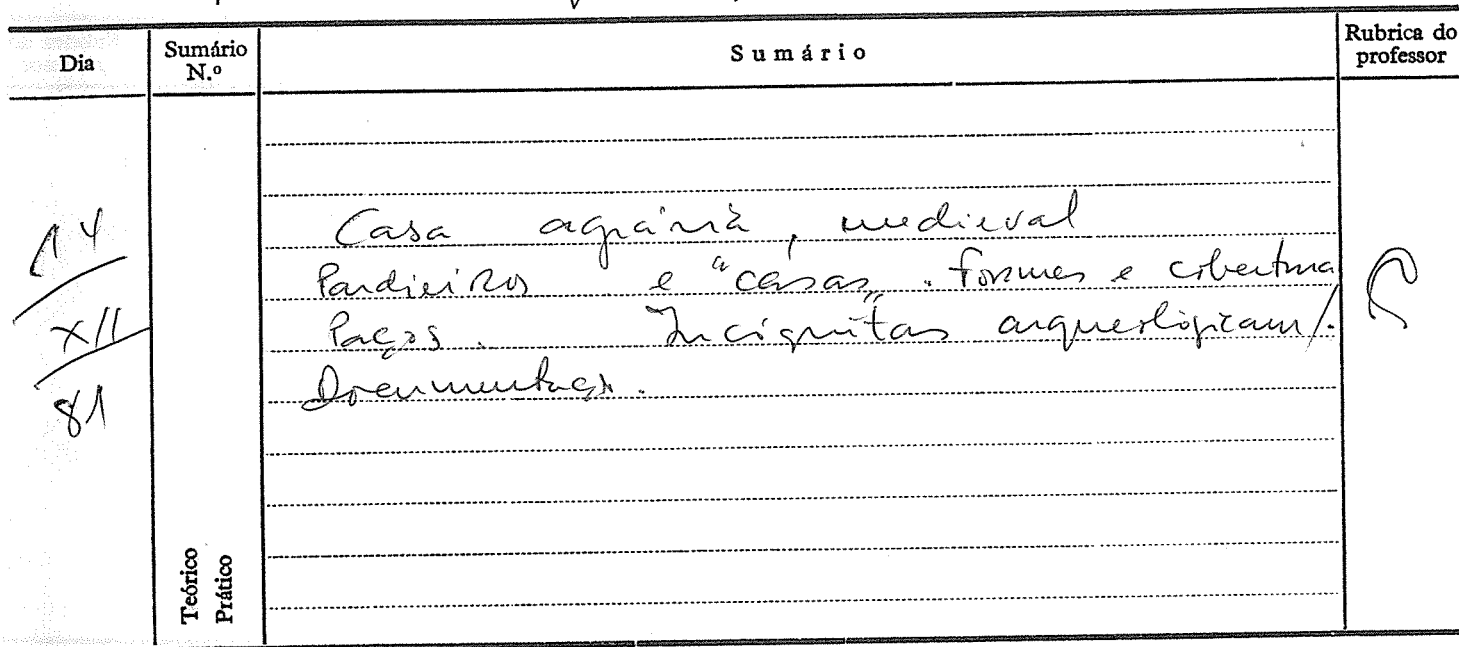 Dia
Sumário N.º
Sumário
Rubrica do professor
14
XII
81
Casa agrária, medieval
Pardieiros e "casas". Formas e cobertura
Paços. Incógnitas arqueologicam/.
Documentaçº.
Teórico
Prático